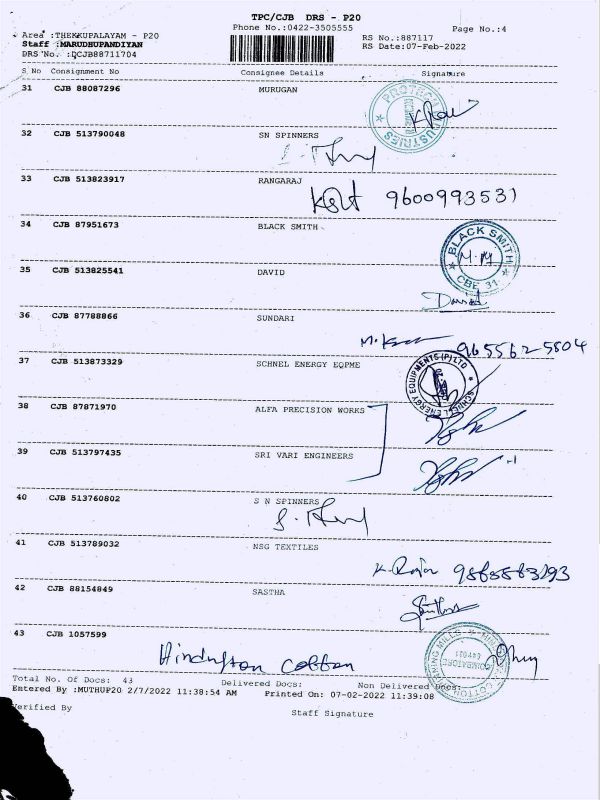 TPC/CJB DRS - P20
Area :THEKKUPALAYAM - P20 Phone No.:0422-3505555 Page No.:4
Staff :MARUDHUPANDIYAN RS No.:887117
DRS No. :DCJB88711704 RS Date:07-Feb-2022
S No Consignment No Consignee Details Signature
31 CJB 88087296 MURUGAN
PROTECH INDUSTRIES
32 CJB 513790048 SN SPINNERS
33 CJB 513823917 RANGARAJ
9600993531
34 CJB 87951673 BLACK SMITH
BLACK SMITH CBE 31
35 CJB 513825541 DAVID
David
36 CJB 87788866 SUNDARI
9655625804
37 CJB 513873329 SCHNEL ENERGY EQPME
SCHNELL ENERGY EQUIPMENTS (P) LTD
38 CJB 87871970 ALFA PRECISION WORKS
39 CJB 513797435 SRI VARI ENGINEERS
40 CJB 513760802 S N SPINNERS
41 CJB 513789032 NSG TEXTILES
K. Raja
42 CJB 88154849 SASTHA
43 CJB 1057599
Hindustan Cotton
Total No. Of Docs: 43 Delivered Docs: Non Delivered Docs:
Entered By :MUTHUP20 2/7/2022 11:38:54 AM Printed On: 07-02-2022 11:39:08
Verified By Staff Signature